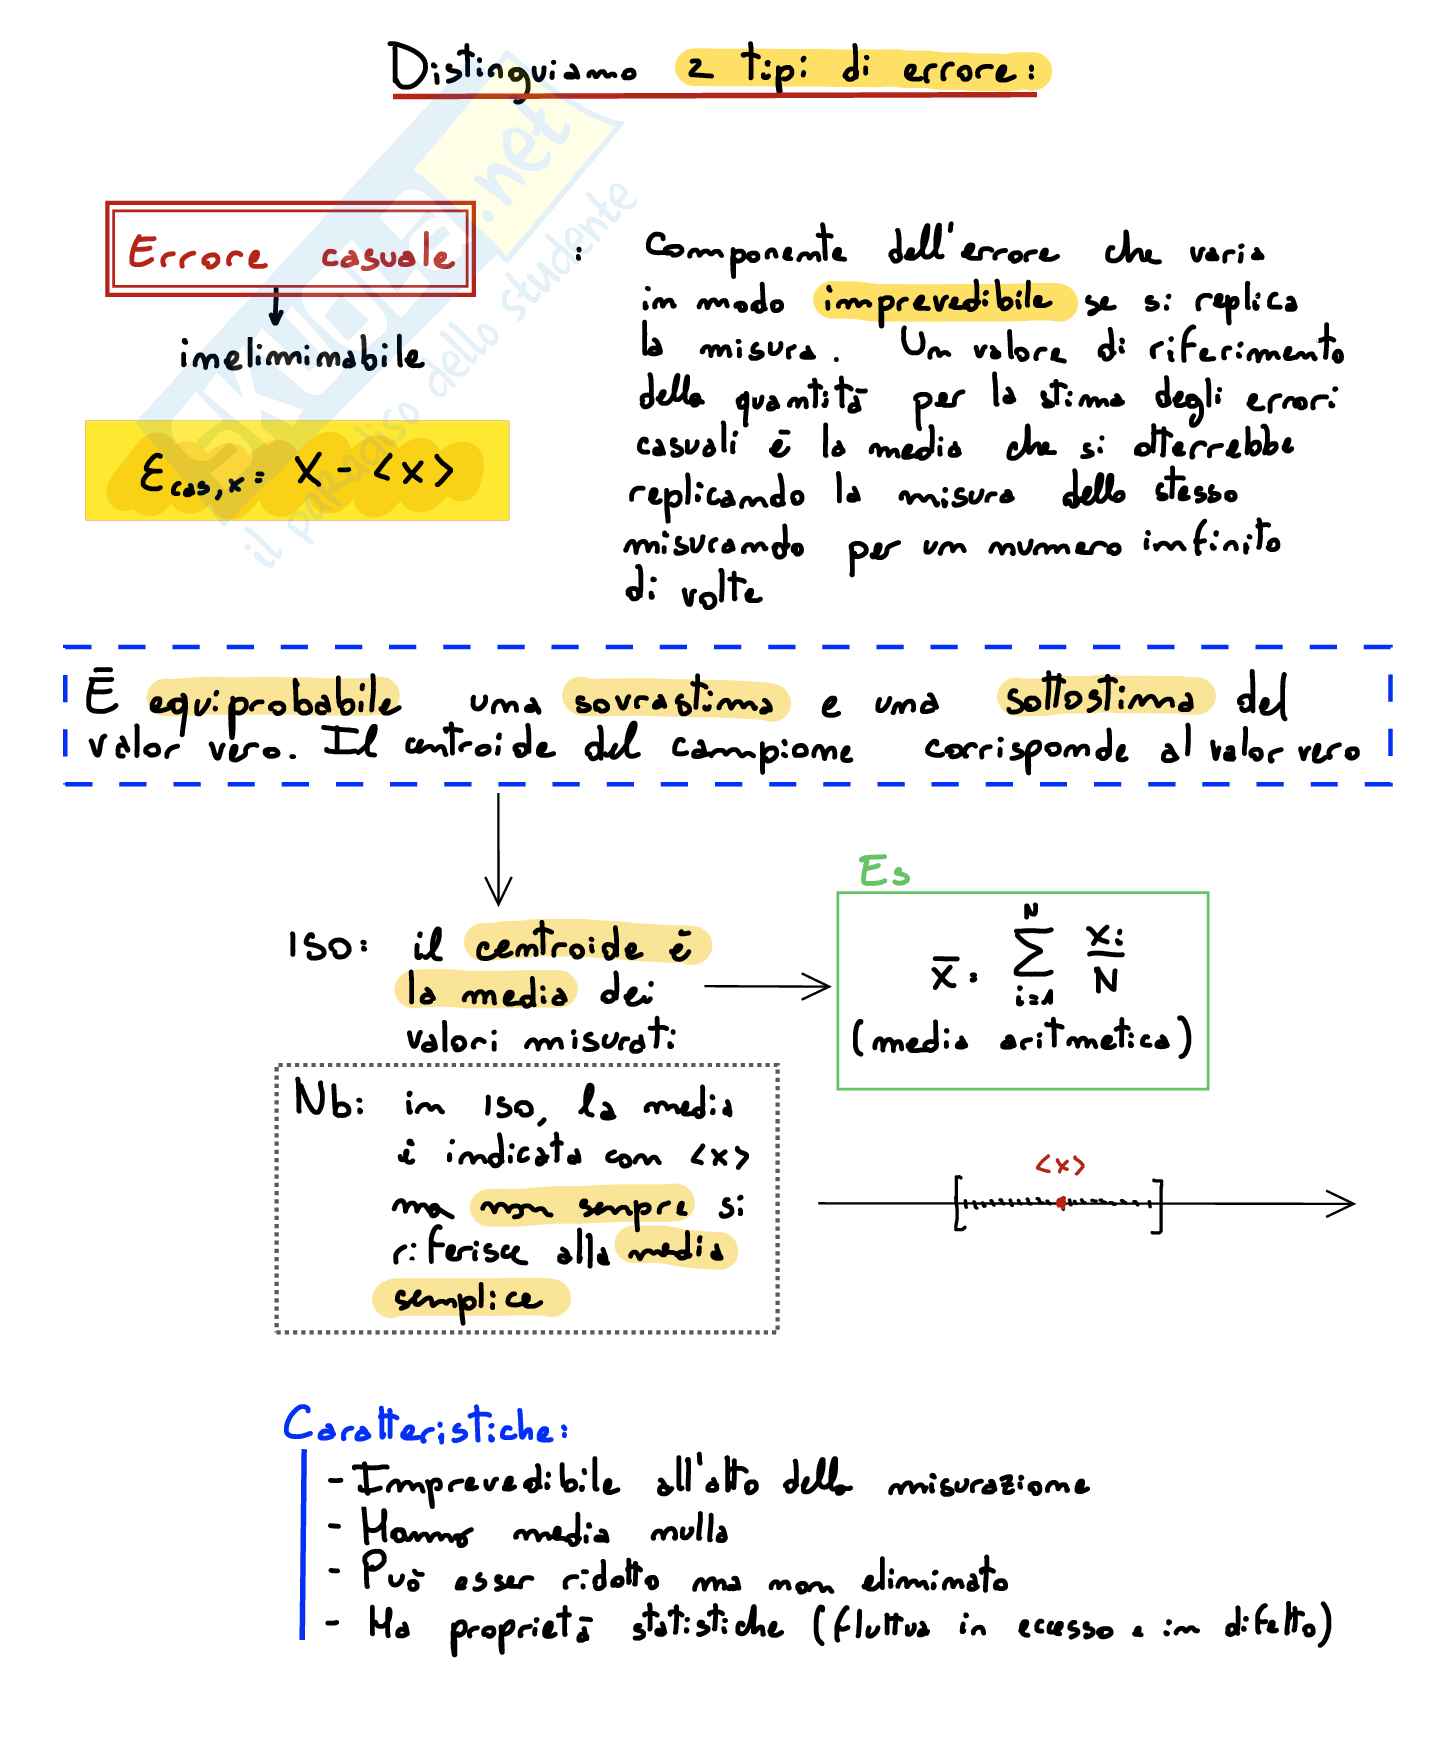 Distinguiamo 2 tipi di errore:
Errore casuale : Componente dell'errore che varia
in modo imprevedibile se si replica
ineliminabile
la misura. Un valore di riferimento
della quantità per la stima degli errori
casuali è la media che si otterrebbe
Ecas,x = X - <x>
replicando la misura dello stesso
misurando per un numero infinito
di volte
È equiprobabile una sovrastima e una sottostima del
valor vero. Il centroide del campione corrisponde al valor vero
ISO: il centroide è
la media dei
valori misurati
Es
x̄ = Σ_{i=1}^{N} xi/N
(media aritmetica)
Nb: in ISO, la media
è indicata con <x>
ma non sempre si
riferisce alla media
semplice
<x>
Caratteristiche:
- Imprevedibile all'atto della misurazione
- Hanno media nulla
- Può esser ridotto ma non eliminato
- Ha proprietà statistiche (fluttua in eccesso e in difetto)
SKUOLA.net
il paradiso dello studente